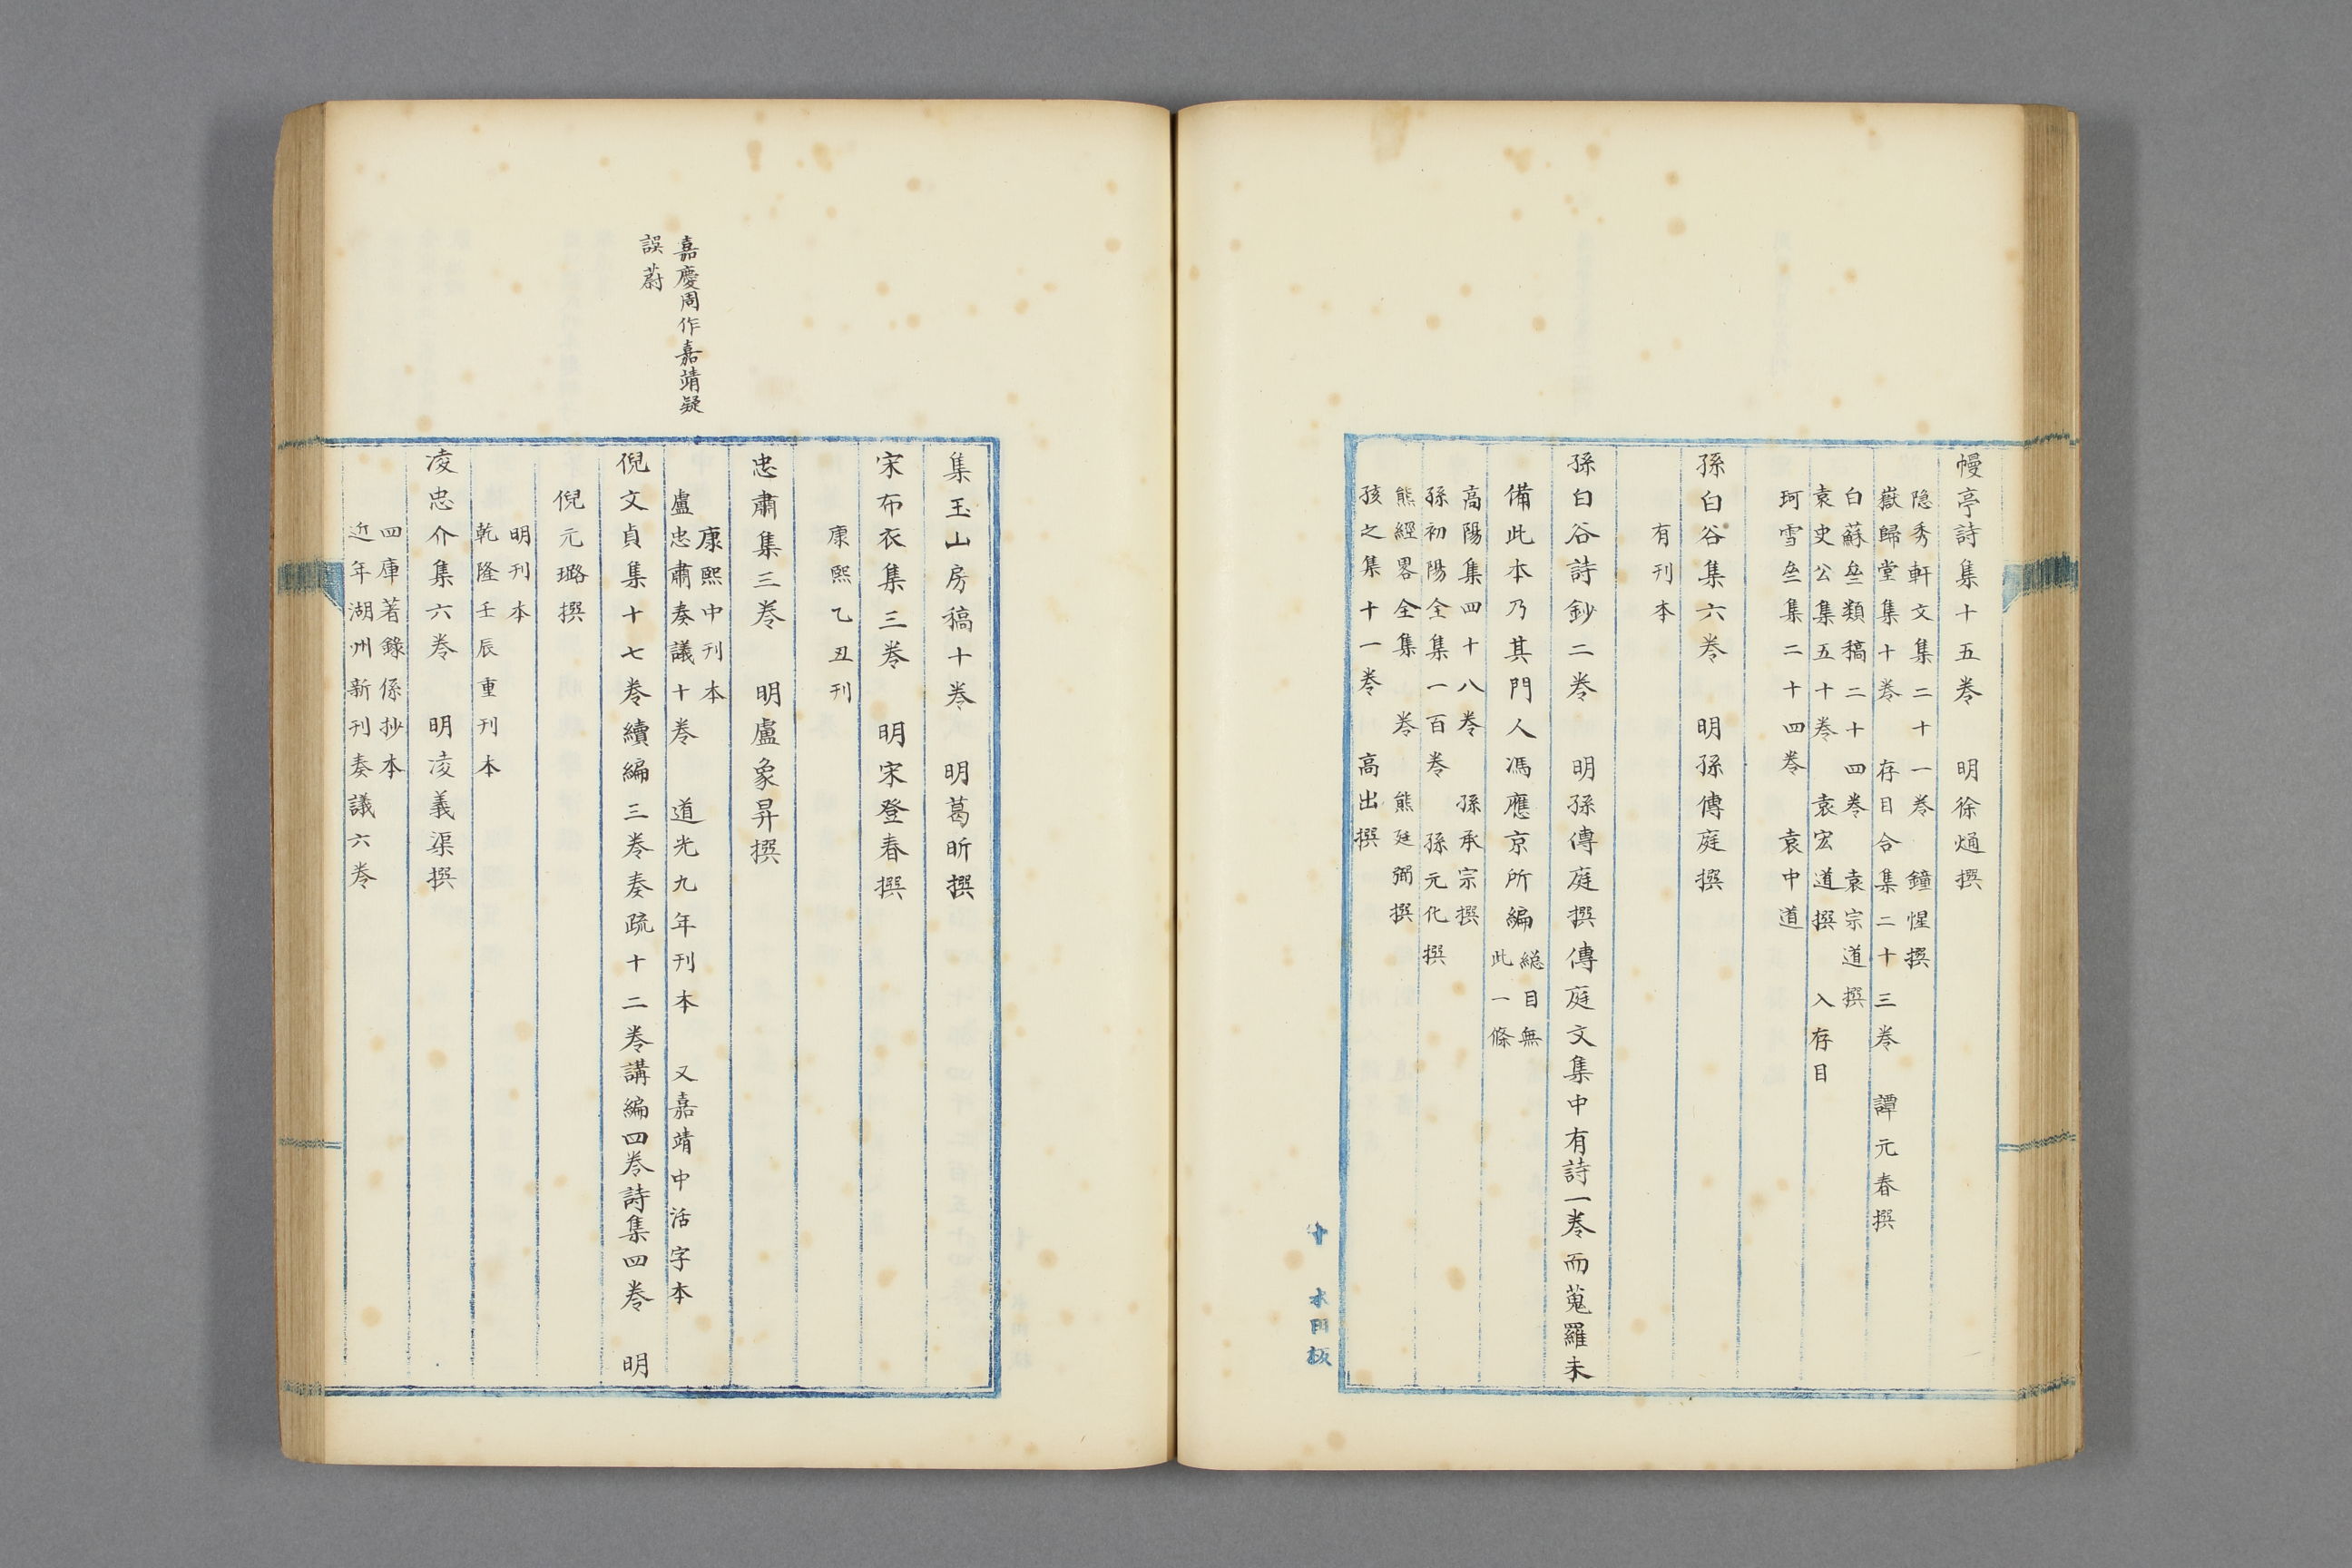 幔亭詩集十五卷　明徐𤊹撰
隠秀軒文集二十一卷　鐘惺撰
嶽歸堂集十卷　存目合集二十三卷　譚元春撰
白蘇亝類稿二十四卷　袁宗道撰
袁史公集五十卷　袁宏道撰　入存目
珂雪亝集二十四卷　袁中道
孫白谷集六卷　明孫傳庭撰
有刊本
孫白谷詩鈔二卷　明孫傳庭撰傳庭文集中有詩一卷而蒐羅未
備此本乃其門人馮應京所編
縂目無
此一條
高陽集四十八卷　孫承宗撰
孫初陽全集一百卷　孫元化撰
熊經畧全集　卷　熊廷弼撰
孩之集十一卷　高出撰
十　木田板
集玉山房稿十卷　明葛昕撰
宋布衣集三卷　明宋登春撰
康熙乙丑刊
忠肅集三卷　明盧象昇撰
嘉慶周作嘉靖疑
誤蔚
康熙中刊本
盧忠肅奏議十卷　道光九年刊本　又嘉靖中活字本
倪文貞集十七卷續編三卷奏疏十二卷講編四卷詩集四卷　明
倪元璐撰
明刊本
乾隆壬辰重刊本
凌忠介集六卷　明凌義渠撰
四庫著錄係抄本
近年湖州新刊奏議六卷